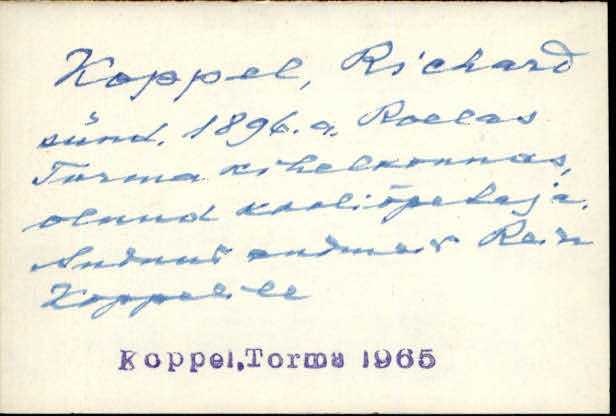 Koppel, Richard
sünd. 1896. a. Roelas
Torma kihelkonnas,
olnud kooliõpetaja.
Andnud andmeid Rein
Koppelile
Koppel,Torma 1965